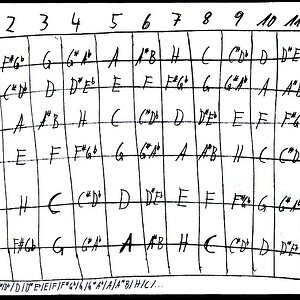 2 3 4 5 6 7 8 9 10 11
F#Gb G G#Ab A A#B H C C#Db D D#E
C#Db D D#Eb E F F#Gb G G#Ab A A#
A A#B H C C#Db D D#Eb E F F#
E F F#Gb G G#Ab A A#B H C C#
H C C#Db D D#Eb E F F#Gb G G#A
F#Gb G G#Ab A A#B H C C#Db D D#E
D D#Eb E F F#Gb G G#Ab A A#B H C...